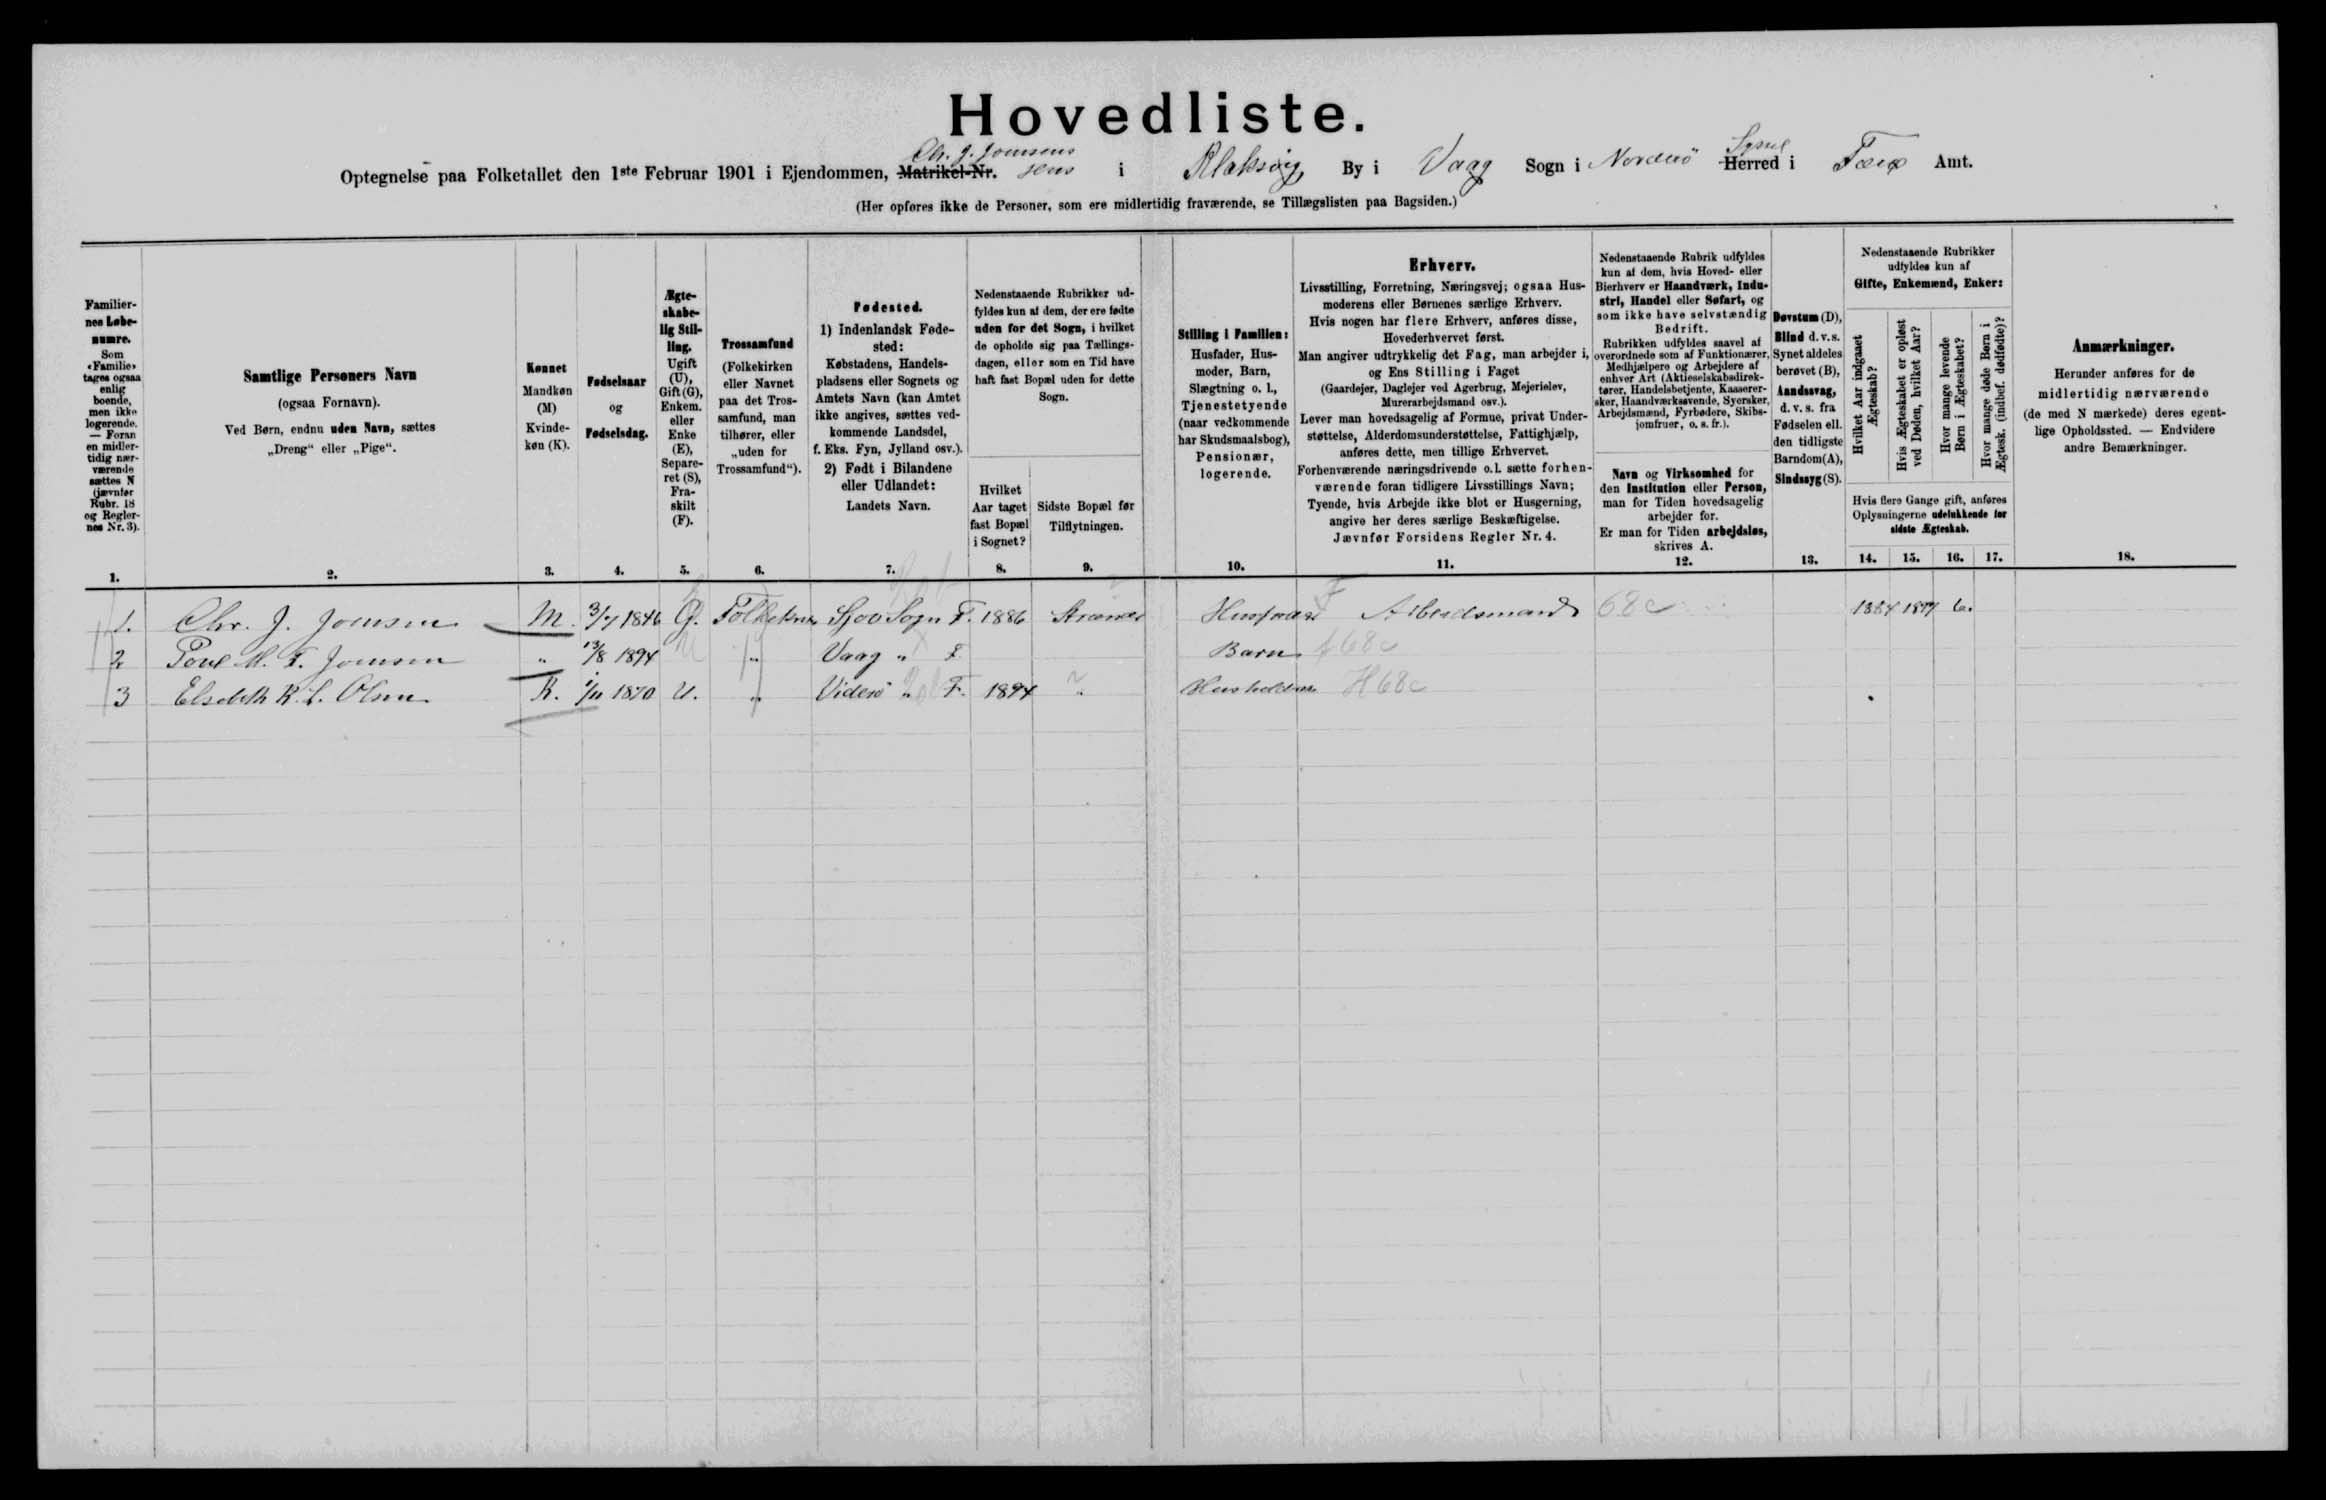 Hovedliste.
Chr. J. Joensens Sysel
Optegnelse paa Folketallet den 1ste Februar 1901 i Ejendommen, Matrikel-Nr. Hus i Klaksvig By i Vaag Sogn i Norderö Herred i Færø Amt.
(Her opføres ikke de Personer, som ere midlertidig fraværende, se Tillægslisten paa Bagsiden.)
Familier-
nes Løbe-
numre.
Som
«Familie»
tages ogsaa
enlig
boende,
men ikke
logerende.
— Foran
en midler-
tidig nær-
værende
sættes N
(jævnfør
Rubr. 18
og Regler-
nes Nr. 3).
1.
Samtlige Personers Navn
(ogsaa Fornavn).
Ved Børn, endnu uden Navn, sættes
„Dreng“ eller „Pige“.
2.
Kønnet
Mandkøn
(M)
Kvinde-
køn (K).
3.
Fødselsaar
og
Fødselsdag.
4.
Ægte-
skabe-
lig Stil-
ling.
Ugift
(U),
Gift (G),
Enkem.
eller
Enke
(E),
Separe-
ret (S),
Fra-
skilt
(F).
5.
Trossamfund
(Folkekirken
eller Navnet
paa det Tros-
samfund, man
tilhører, eller
„uden for
Trossamfund“).
6.
Fødested.
1) Indenlandsk Føde-
sted:
Købstadens, Handels-
pladsens eller Sognets og
Amtets Navn (kan Amtet
ikke angives, sættes ved-
kommende Landsdel,
f. Eks. Fyn, Jylland osv.).
2) Født i Bilandene
eller Udlandet:
Landets Navn.
7.
Nedenstaaende Rubrikker ud-
fyldes kun af dem, der ere fødte
uden for det Sogn, i hvilket
de opholde sig paa Tællings-
dagen, eller som en Tid have
haft fast Bopæl uden for dette
Sogn.
Hvilket
Aar taget
fast Bopæl
i Sognet?
8.
Sidste Bopæl før
Tilflytningen.
9.
Stilling i Familien:
Husfader, Hus-
moder, Barn,
Slægtning o. l.,
Tjenestetyende
(naar vedkommende
har Skudsmaalsbog),
Pensionær,
logerende.
10.
Erhverv.
Livsstilling, Forretning, Næringsvej; ogsaa Hus-
moderens eller Børnenes særlige Erhverv.
Hvis nogen har flere Erhverv, anføres disse,
Hovederhvervet først.
Man angiver udtrykkelig det Fag, man arbejder i,
og Ens Stilling i Faget
(Gaardejer, Daglejer ved Agerbrug, Mejerielev,
Murerarbejdsmand osv.).
Lever man hovedsagelig af Formue, privat Under-
støttelse, Alderdomsunderstøttelse, Fattighjælp,
anføres dette, men tillige Erhvervet.
Forhenværende næringsdrivende o. l. sætte forhen-
værende foran tidligere Livsstillings Navn;
Tyende, hvis Arbejde ikke blot er Husgerning,
angive her deres særlige Beskæftigelse.
Jævnfør Forsidens Regler Nr. 4.
11.
Nedenstaaende Rubrik udfyldes
kun af dem, hvis Hoved- eller
Bierhverv er Haandværk, Indu-
stri, Handel eller Søfart, og
som ikke have selvstændig
Bedrift.
Rubrikken udfyldes saavel af
overordnede som af Funktionærer,
Medhjælpere og Arbejdere af
enhver Art (Aktieselskabsdirek-
tører, Handelsbetjente, Kasserer-
sker, Haandværkssvende, Syersker,
Arbejdsmænd, Fyrbødere, Skibs-
jomfruer, o. s. fr.).
Navn og Virksomhed for
den Institution eller Person,
man for Tiden hovedsagelig
arbejder for.
Er man for Tiden arbejdsløs,
skrives A.
12.
Døvstum (D),
Blind d. v. s.
Synet aldeles
berøvet (B),
Aandssvag,
d. v. s. fra
Fødselen ell.
den tidligste
Barndom (A),
Sindssyg (S).
13.
Nedenstaaende Rubrikker
udfyldes kun af
Gifte, Enkemænd, Enker:
Hvilket Aar indgaaet
Ægteskab?
Hvis Ægteskabet er opløst
ved Døden, hvilket Aar?
Hvor mange levende
Børn i Ægteskabet?
Hvor mange døde Børn i
Ægtesk. (indbef. dødfødte)?
Hvis flere Gange gift, anføres
Oplysningerne udelukkende for
sidste Ægteskab.
14. 15. 16. 17.
Anmærkninger.
Herunder anføres for de
midlertidig nærværende
(de med N mærkede) deres egent-
lige Opholdssted. — Endvidere
andre Bemærkninger.
18.
1. Chr. J. Joensen M. 3/7 1846 G. Folkekirk Sjov Sogn F. 1886 Husfader Arbeidsmand 68c 1884 1897 6.
2 Poul M. F. Joensen " 13/8 1894 U " Vaag " F. Barn f 68c
3 Elsebeth K. S. Olsen K. 1/11 1870 U. " Viderö " F. 1894 " Husholdske H 68c